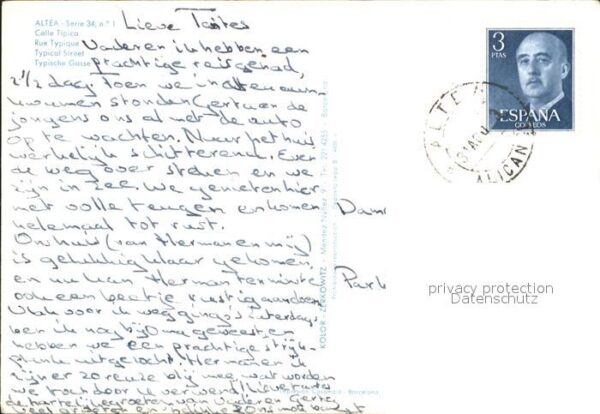 ALTEA - Serie 34, n.° 1
Calle Típica
Rue Typique
Typical Street
Typische Gasse
Lieve Tantes
Vader en ik hebben een
prachtige reis gehad,
2½ dag. Toen we in Altea aan
kwamen stonden Ger en de
jongens ons al met de auto
op te wachten. Maar het huis
werkelijk schitterend. Even
de weg over steken en we
zijn in zee. We genieten hier
met volle teugen en komen
helemaal tot rust.
Ons huis (van Herman en mij)
is gelukkig klaar gekomen
en nu kan Herman tenminste
ook een beetje rustig aan doen.
Vlak voor ik weg ging 's zaterdags
ben ik nog bij Oma geweest en
hebben we een prachtige strijk-
plank uitgezocht. Herman en ik
zijn er zo reuze blij mee wat worden
we toch door je verwend! Lieve tantes
de hartelijke groeten van Vader en Gerta,
veel groeten en
KOLOR - ZERKOWITZ - Mendez Nuñez
Barcelona
3
PTAS
ESPAÑA
CORREOS
ALTEA
ALICAN
Dam
Park
privacy protection
Datenschutz